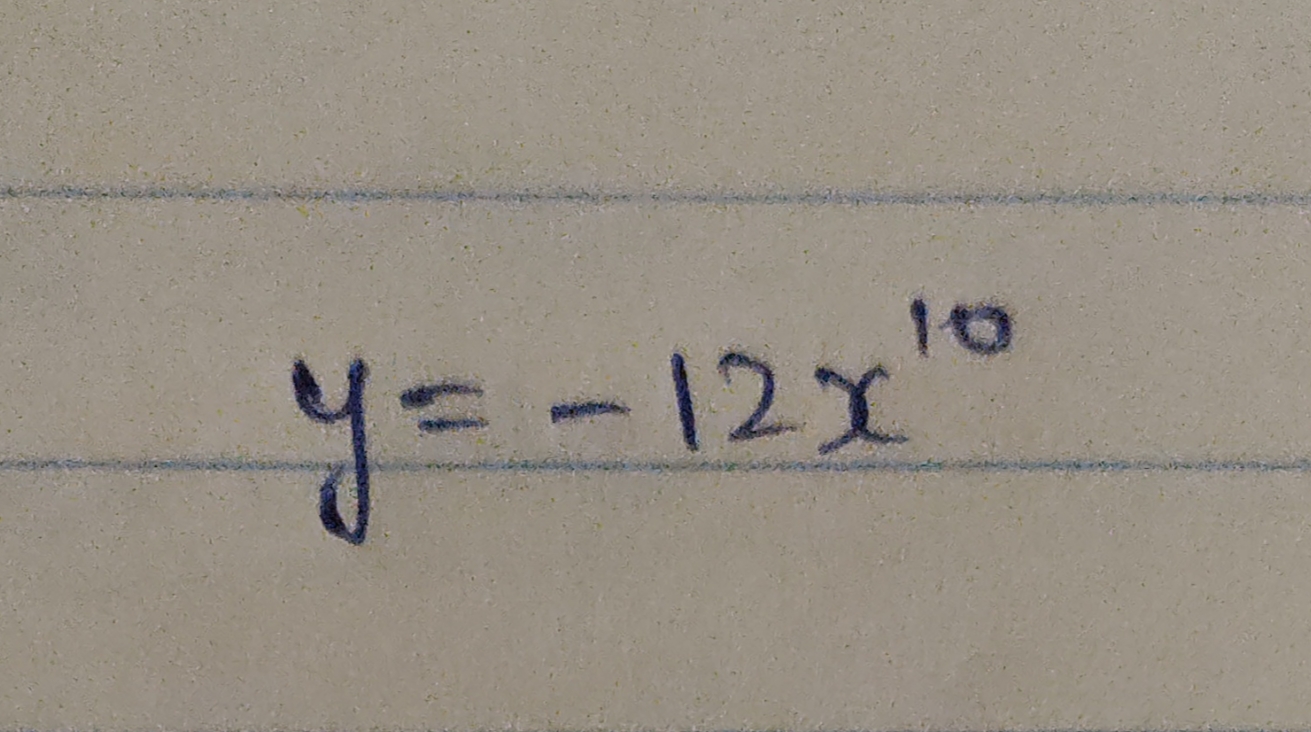 y = -12x¹⁰